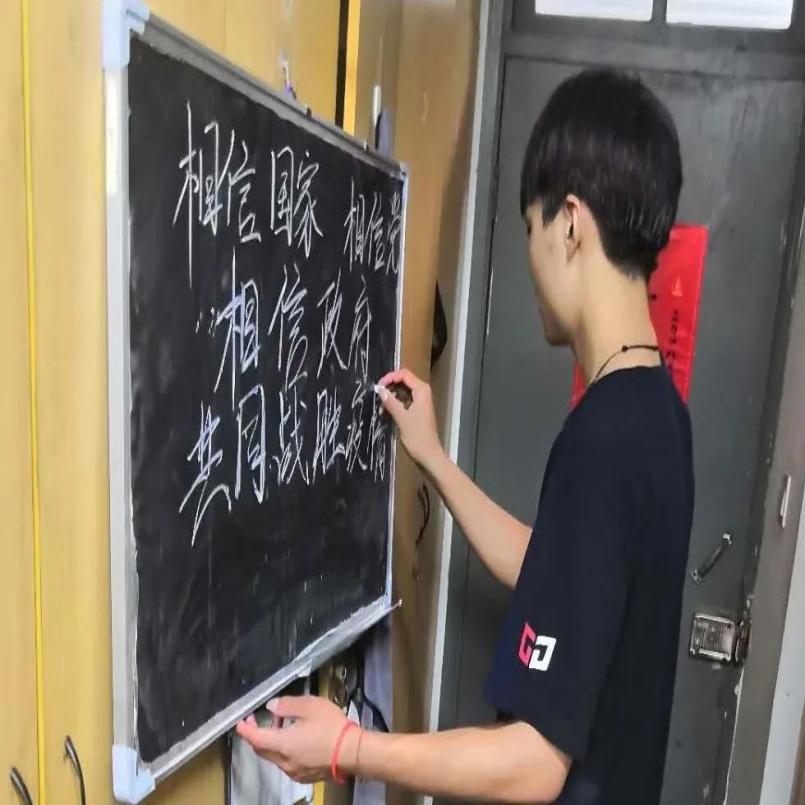 相信国家 相信党
相信政府
共同战胜疫情